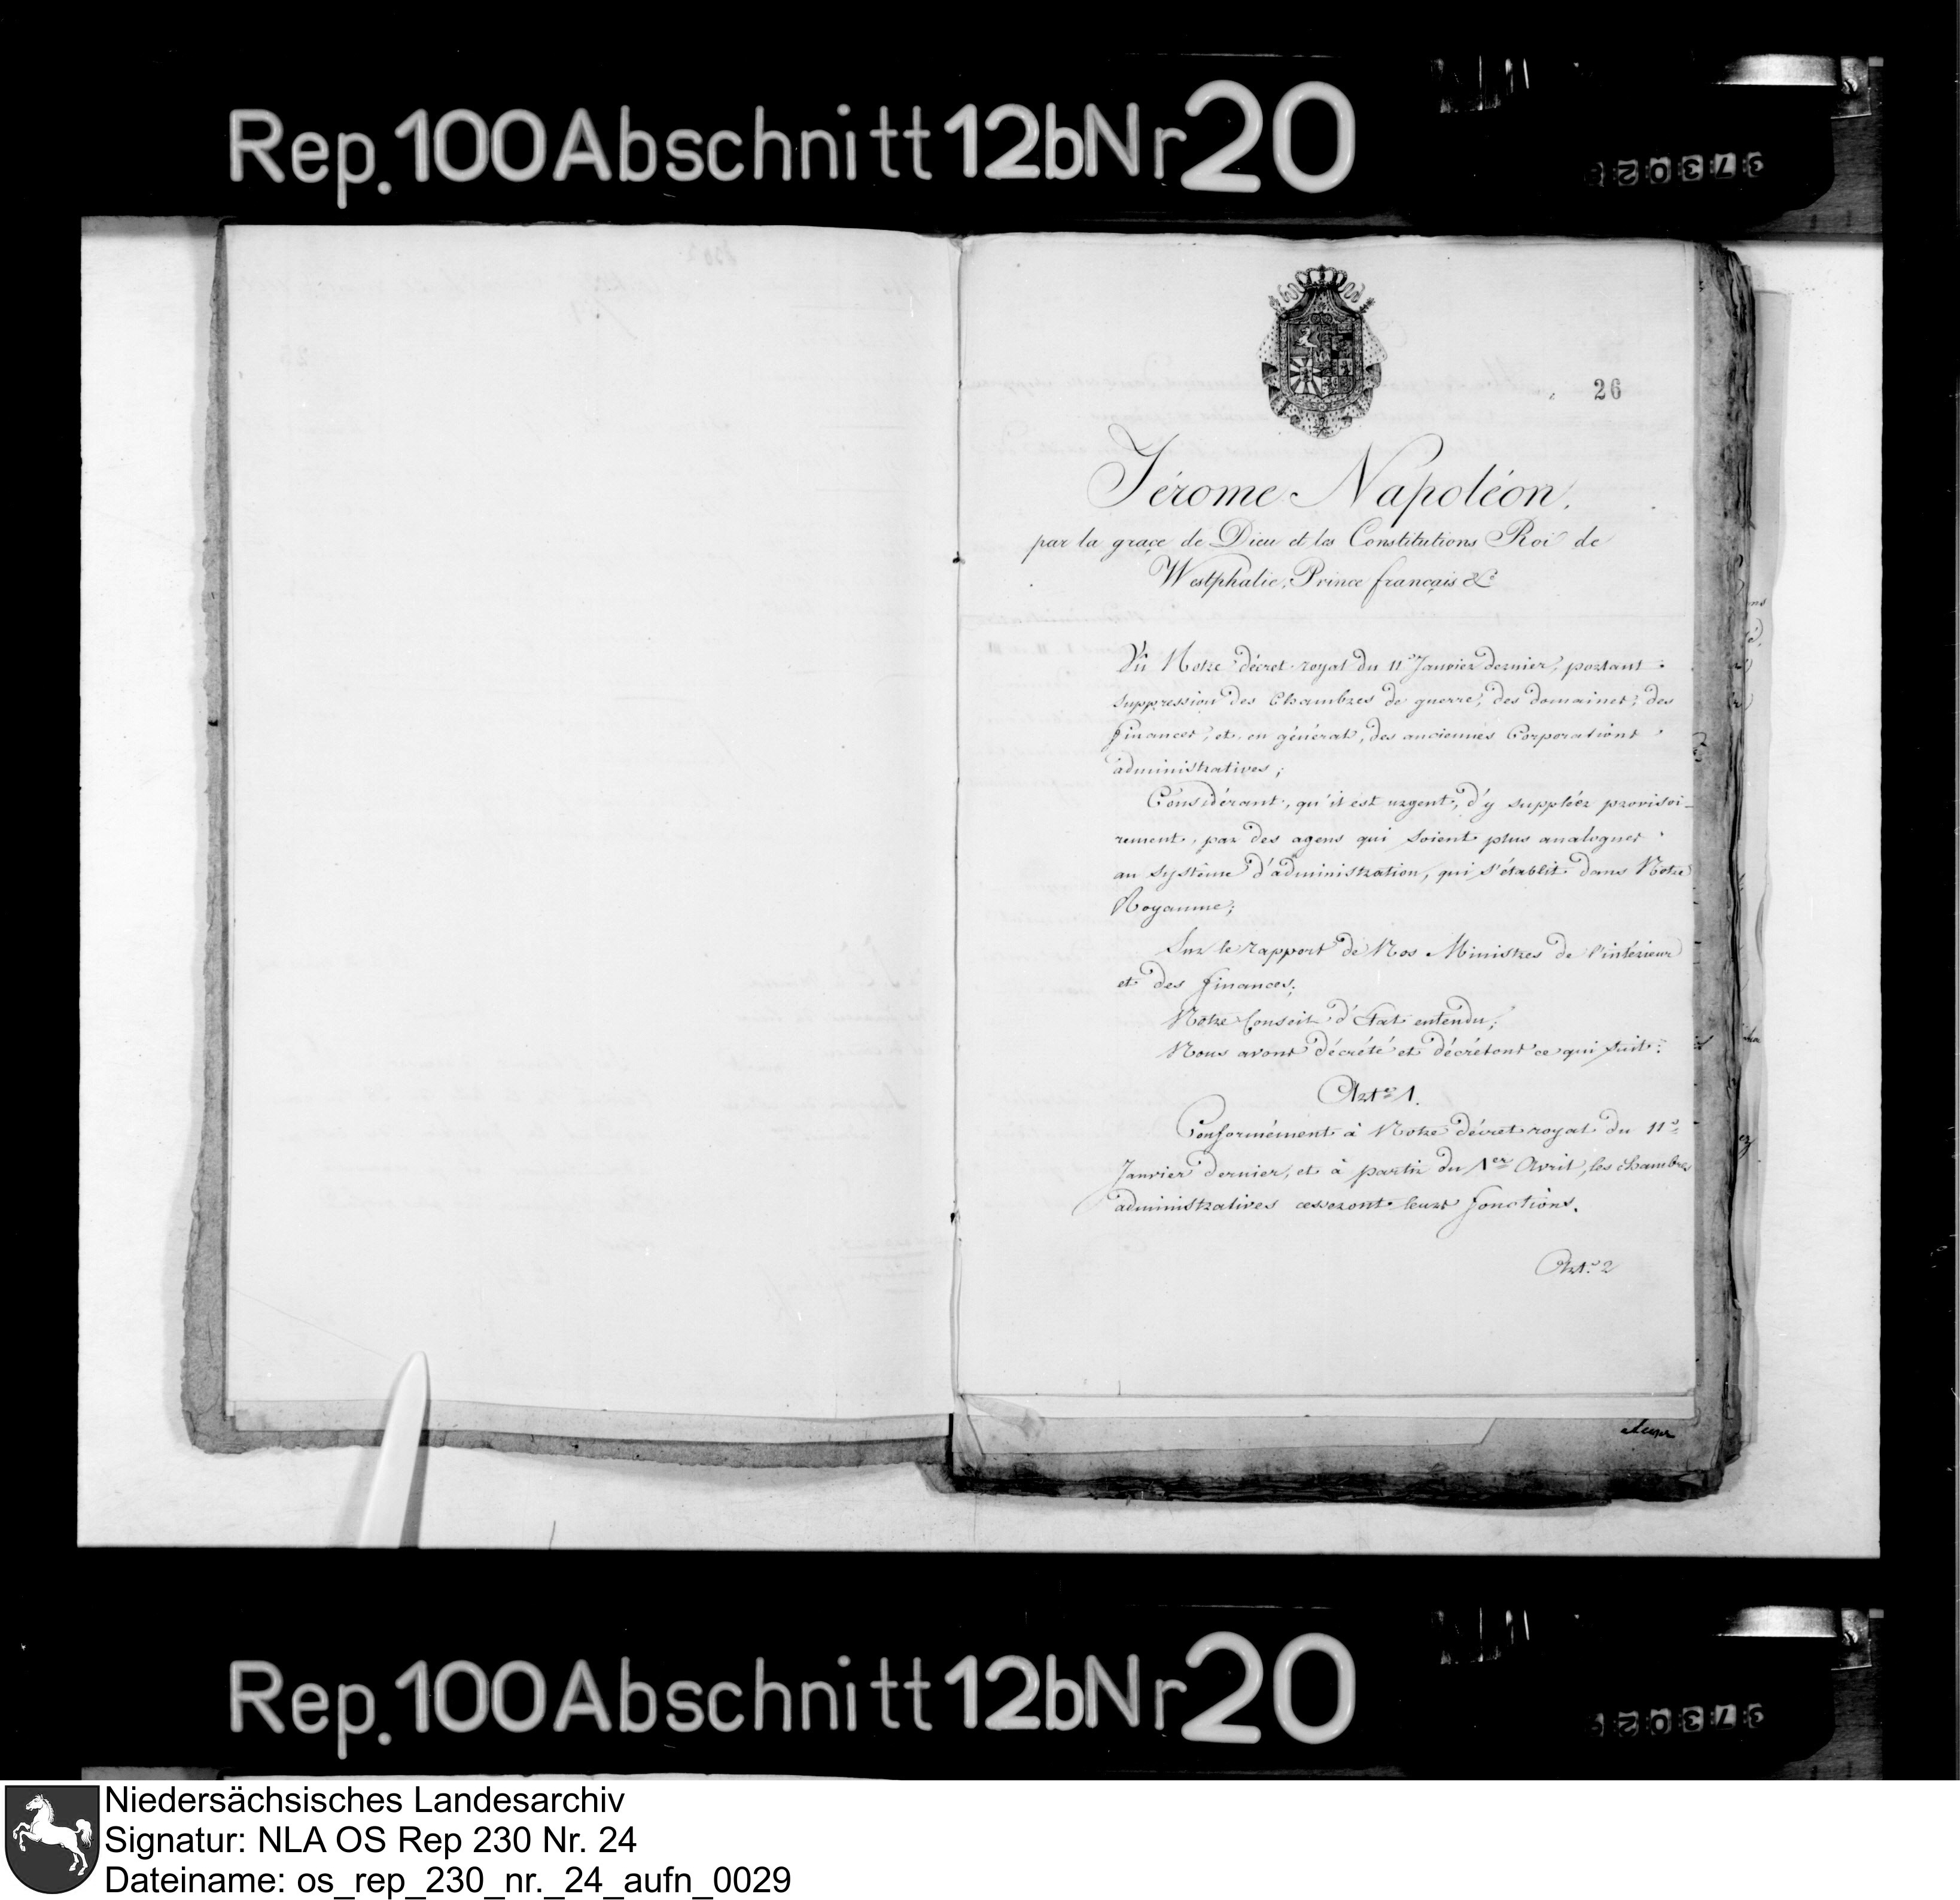 Rep. 100 Abschnitt 12b Nr 20
26
Jérome Napoléon,
par la grace de Dieu et les Constitutions Roi de
Westphalie, Prince français &c
Vû Notre décret royal du 11 Janvier dernier, portant
suppression des Chambres de guerre, des domaines, des
finances, et, en général, des anciennes Corporations
administratives;
Considérant, qu'il est urgent, d'y suppléer provisoi-
rement, par des agens qui soient plus analogues
au système d'administration, qui s'établit dans Notre
Royaume;
Sur le rapport de Nos Ministres de l'intérieur
et des finances;
Notre Conseil d'Etat entendu;
Nous avons décrété et décrétons ce qui suit:
Art. 1.
Conformément à Notre décret royal du 11
Janvier dernier, et à partir du 1er Avril, les chambres
administratives cesseront leurs fonctions.
Art. 2
Rep. 100 Abschnitt 12b Nr 20
Niedersächsisches Landesarchiv
Signatur: NLA OS Rep 230 Nr. 24
Dateiname: os_rep_230_nr._24_aufn_0029